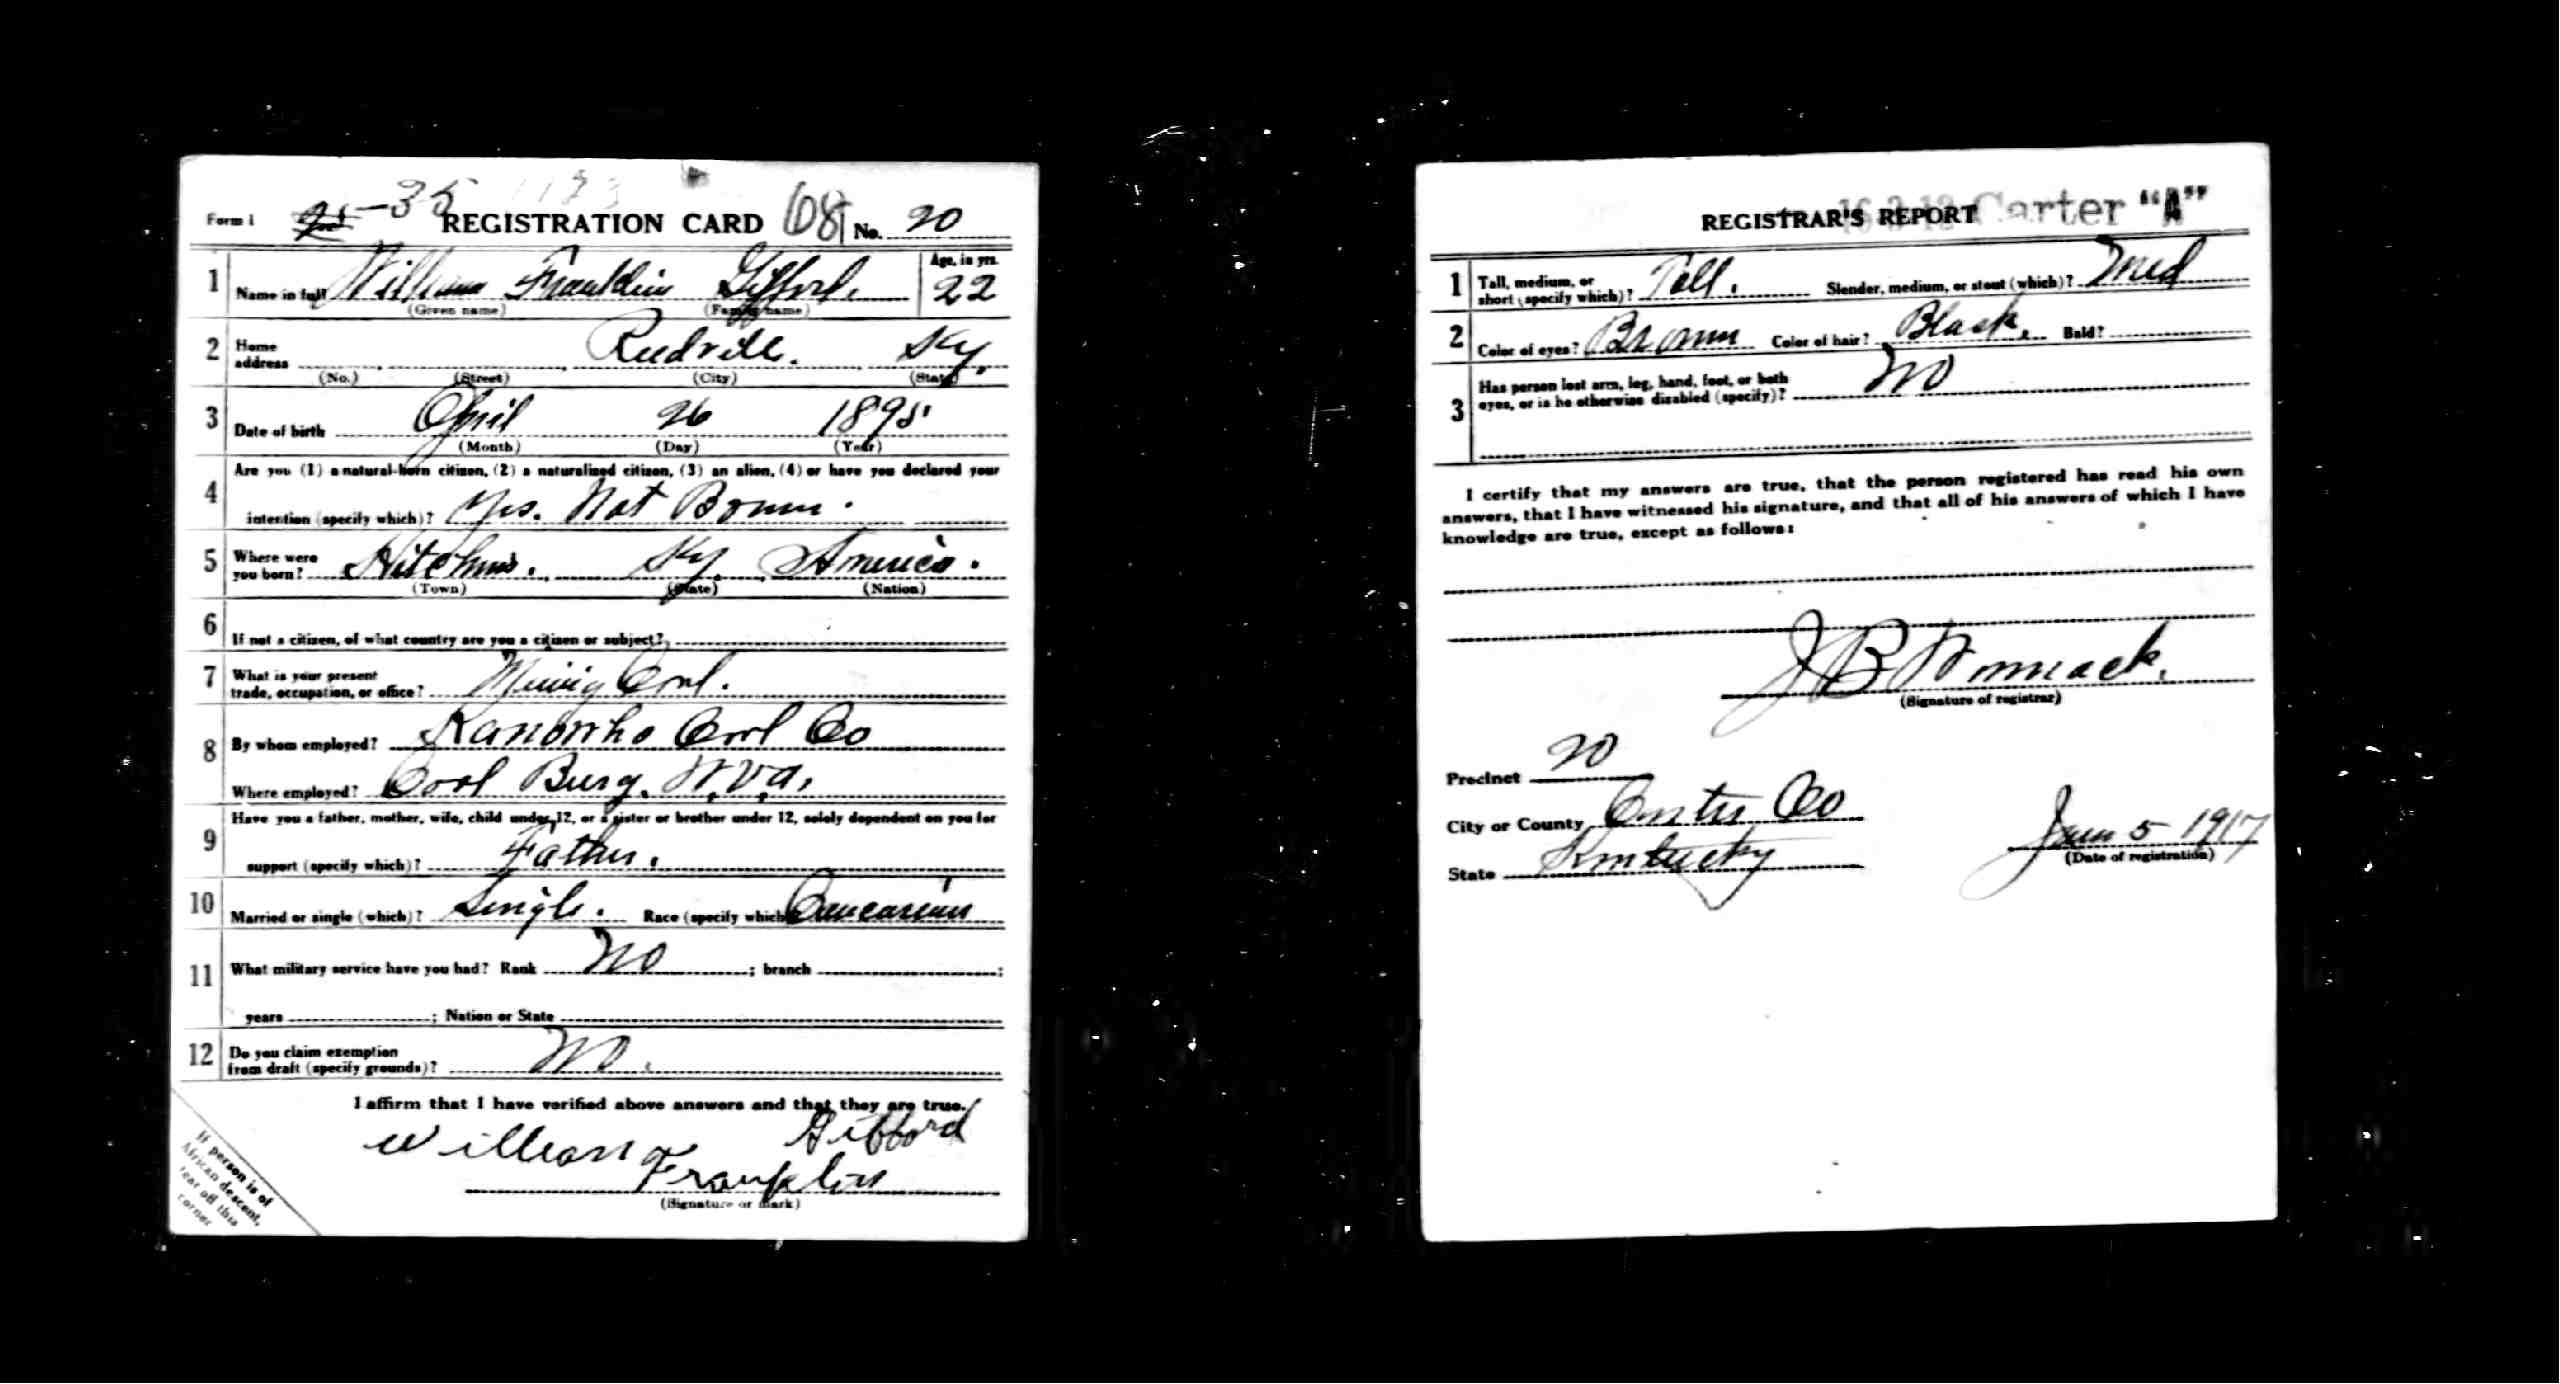 Form 1 35 REGISTRATION CARD 68 No. 20
1 Name in full William Franklin Gifford. Age, in yrs. 22
(Given name) (Family name)
2 Home address Reedville. Ky.
(No.) (Street) (City) (State)
3 Date of birth April 26 1895
(Month) (Day) (Year)
4 Are you (1) a natural-born citizen, (2) a naturalized citizen, (3) an alien, (4) or have you declared your
intention (specify which)? Yes. Nat Born.
5 Where were you born? Hitchins. Ky America.
(Town) (State) (Nation)
6 If not a citizen, of what country are you a citizen or subject?
7 What is your present
trade, occupation, or office? Minig Coal.
8 By whom employed? Kanowha Coal Co
Where employed? Coal Burg. W.Va.
9 Have you a father, mother, wife, child under 12, or a sister or brother under 12, solely dependent on you for
support (specify which)? Father.
10 Married or single (which)? Single. Race (specify which)? Caucasian
11 What military service have you had? Rank No ; branch ;
years ; Nation or State
12 Do you claim exemption
from draft (specify grounds)? No.
I affirm that I have verified above answers and that they are true.
William Franklin Gifford
(Signature or mark)
If person is of
African descent,
tear off this
corner
REGISTRAR'S REPORT Carter "A"
1 Tall, medium, or
short (specify which)? Tall. Slender, medium, or stout (which)? Med
2 Color of eyes? Brown Color of hair? Black. Bald?
3 Has person lost arm, leg, hand, foot, or both
eyes, or is he otherwise disabled (specify)? No
I certify that my answers are true, that the person registered has read his own
answers, that I have witnessed his signature, and that all of his answers of which I have
knowledge are true, except as follows:
J B Womack.
(Signature of registrar)
Precinct 20
City or County Carter Co
State Kentucky
Jun 5 1917
(Date of registration)